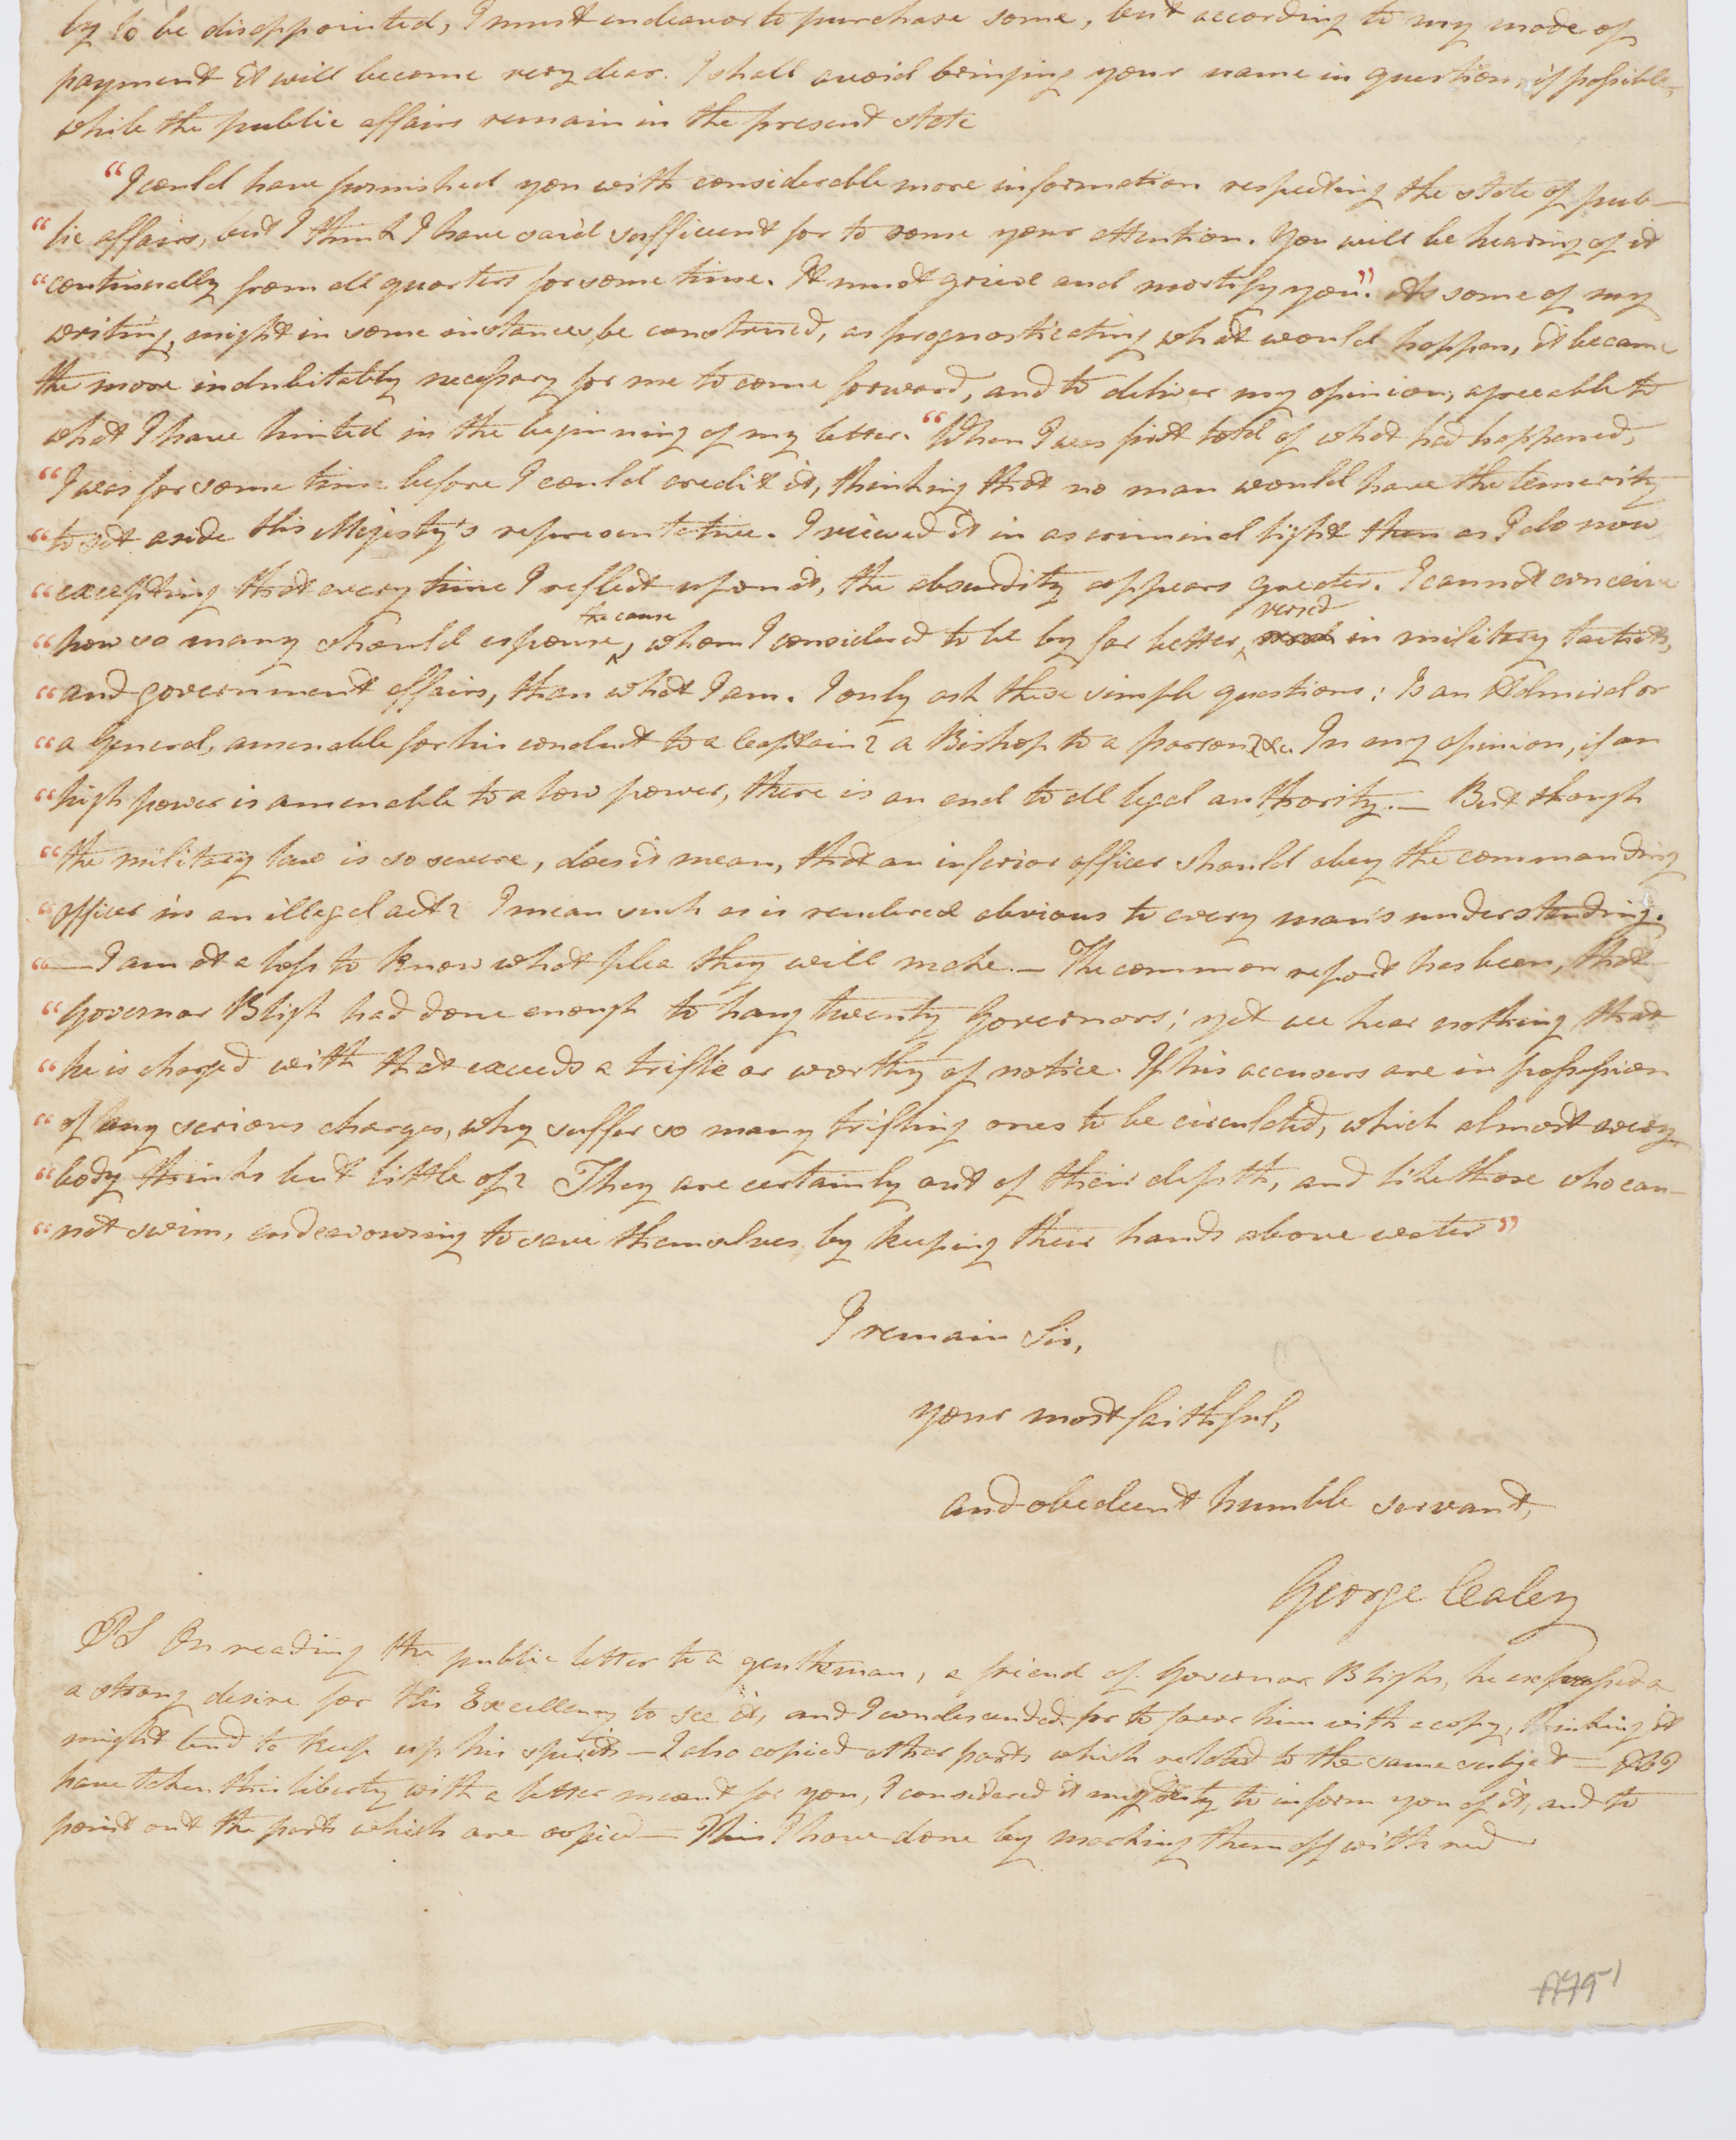 by to be disappointed, I must endeavor to purchase some, but according to my mode of
payment it will become very dear. I shall avoid bringing your name in question, if possible,
while the public affairs remain in the present state
"I could have furnished you with considerable more information respecting the state of pub-
"lic affairs, but I think I have said sufficient for to rouse your attention. You will be hearing of it
"continually from all quarters for some time. It must grieve and mortify you". As some of my
writing, might in some instances be construed, as prognosticating what would happen, it became
the more indubitably necessary for me to come forward, and to deliver my opinion, agreeable to
what I have hinted in the beginning of my letter. "When I was first told of what had happened,
"I was for some time before I could credit it, thinking that no man would have the temerity
"to set aside His Majesty's representative. I viewed it in as criminal light then as I do now
"excepting that every time I reflect upon it, the absurdity appears greater. I cannot conceive
the cause versed
"how so many should espouse, whom I considered to be by far better, in military tacticks,
"and government affairs, than what I am. I only ask these simple questions: Is an Admiral or
"a General, amenable for his conduct to a Captain? a Bishop to a parson? &c. In my opinion, if an
"high power is amenable to a low power, there is an end to all legal authority. — But though
"the military law is so severe, does it mean, that an inferior officer should obey the commanding
"officer in an illegal act? I mean such as is rendered obvious to every man's understanding.
"— I am at a loss to know what plea they will make. — The common report has been, that
"Governor Bligh had done enough to hang twenty Governors; yet we hear nothing that
"he is charged with that exceeds a trifle or worthy of notice. If his accusers are in possession
"of any serious charges, why suffer so many trifling ones to be circulated, which almost every
"body thinks but little of? They are certainly out of their depth, and like those who can-
"not swim, endeavouring to save themselves, by keeping their hands above water"
I remain Sir,
your most faithful,
and obedient humble servant,
George Caley
PS On reading the public letter to a gentleman, a friend of Governor Blighs, he expressed a
a strong desire for His Excellency to see it, and I condescended for to favor him with a copy, thinking it
might tend to keep up his spirits — I also copied other parts which related to the same subject — As I
have taken this liberty with a letter meant for you, I considered it my duty to inform you of it, and to
point out the parts which are copied — This I have done by marking them off with red